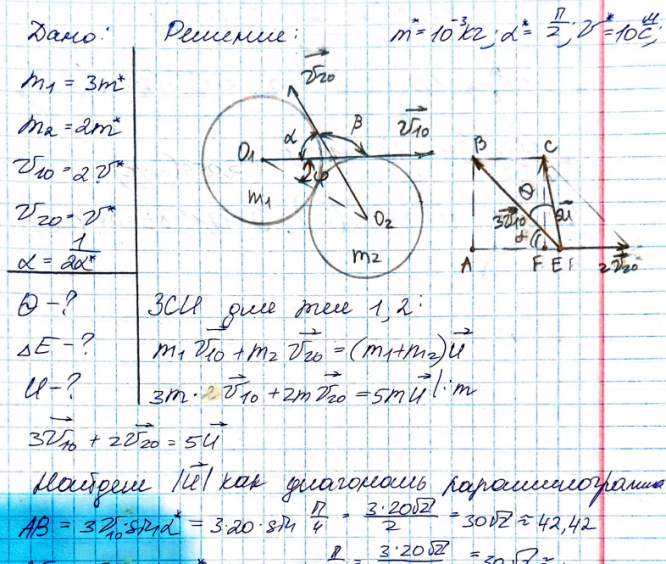 Дано:
m₁ = 3m*
m₂ = 2m*
v₁₀ = 2v*
v₂₀ = v*
α = 1/2α*
Θ - ?
ΔE - ?
U - ?
Решение:
m* = 10⁻³кг; α* = π/2; v* = 10 м/с;
v₂₀
α β v₁₀
O₁ φ
m₁
O₂
m₂
B C
Θ
3v₁₀ 5u
α
A F E 2v₂₀
ЗСИ для тел 1,2:
m₁v₁₀ + m₂v₂₀ = (m₁+m₂)u
3m · v₁₀ + 2mv₂₀ = 5mu |: m
3v₁₀ + 2v₂₀ = 5u
Найдем |u| как диагональ параллелограмма
AB = 3v₁₀·sinα* = 3·20·sin π/4 = 3·20√2/2 = 30√2 ≈ 42,42